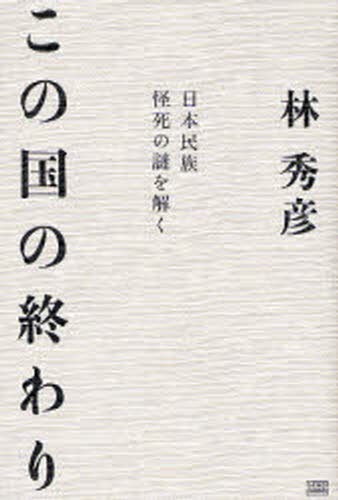 林 秀彦
日本民族
怪死の謎を解く
この国の終わり